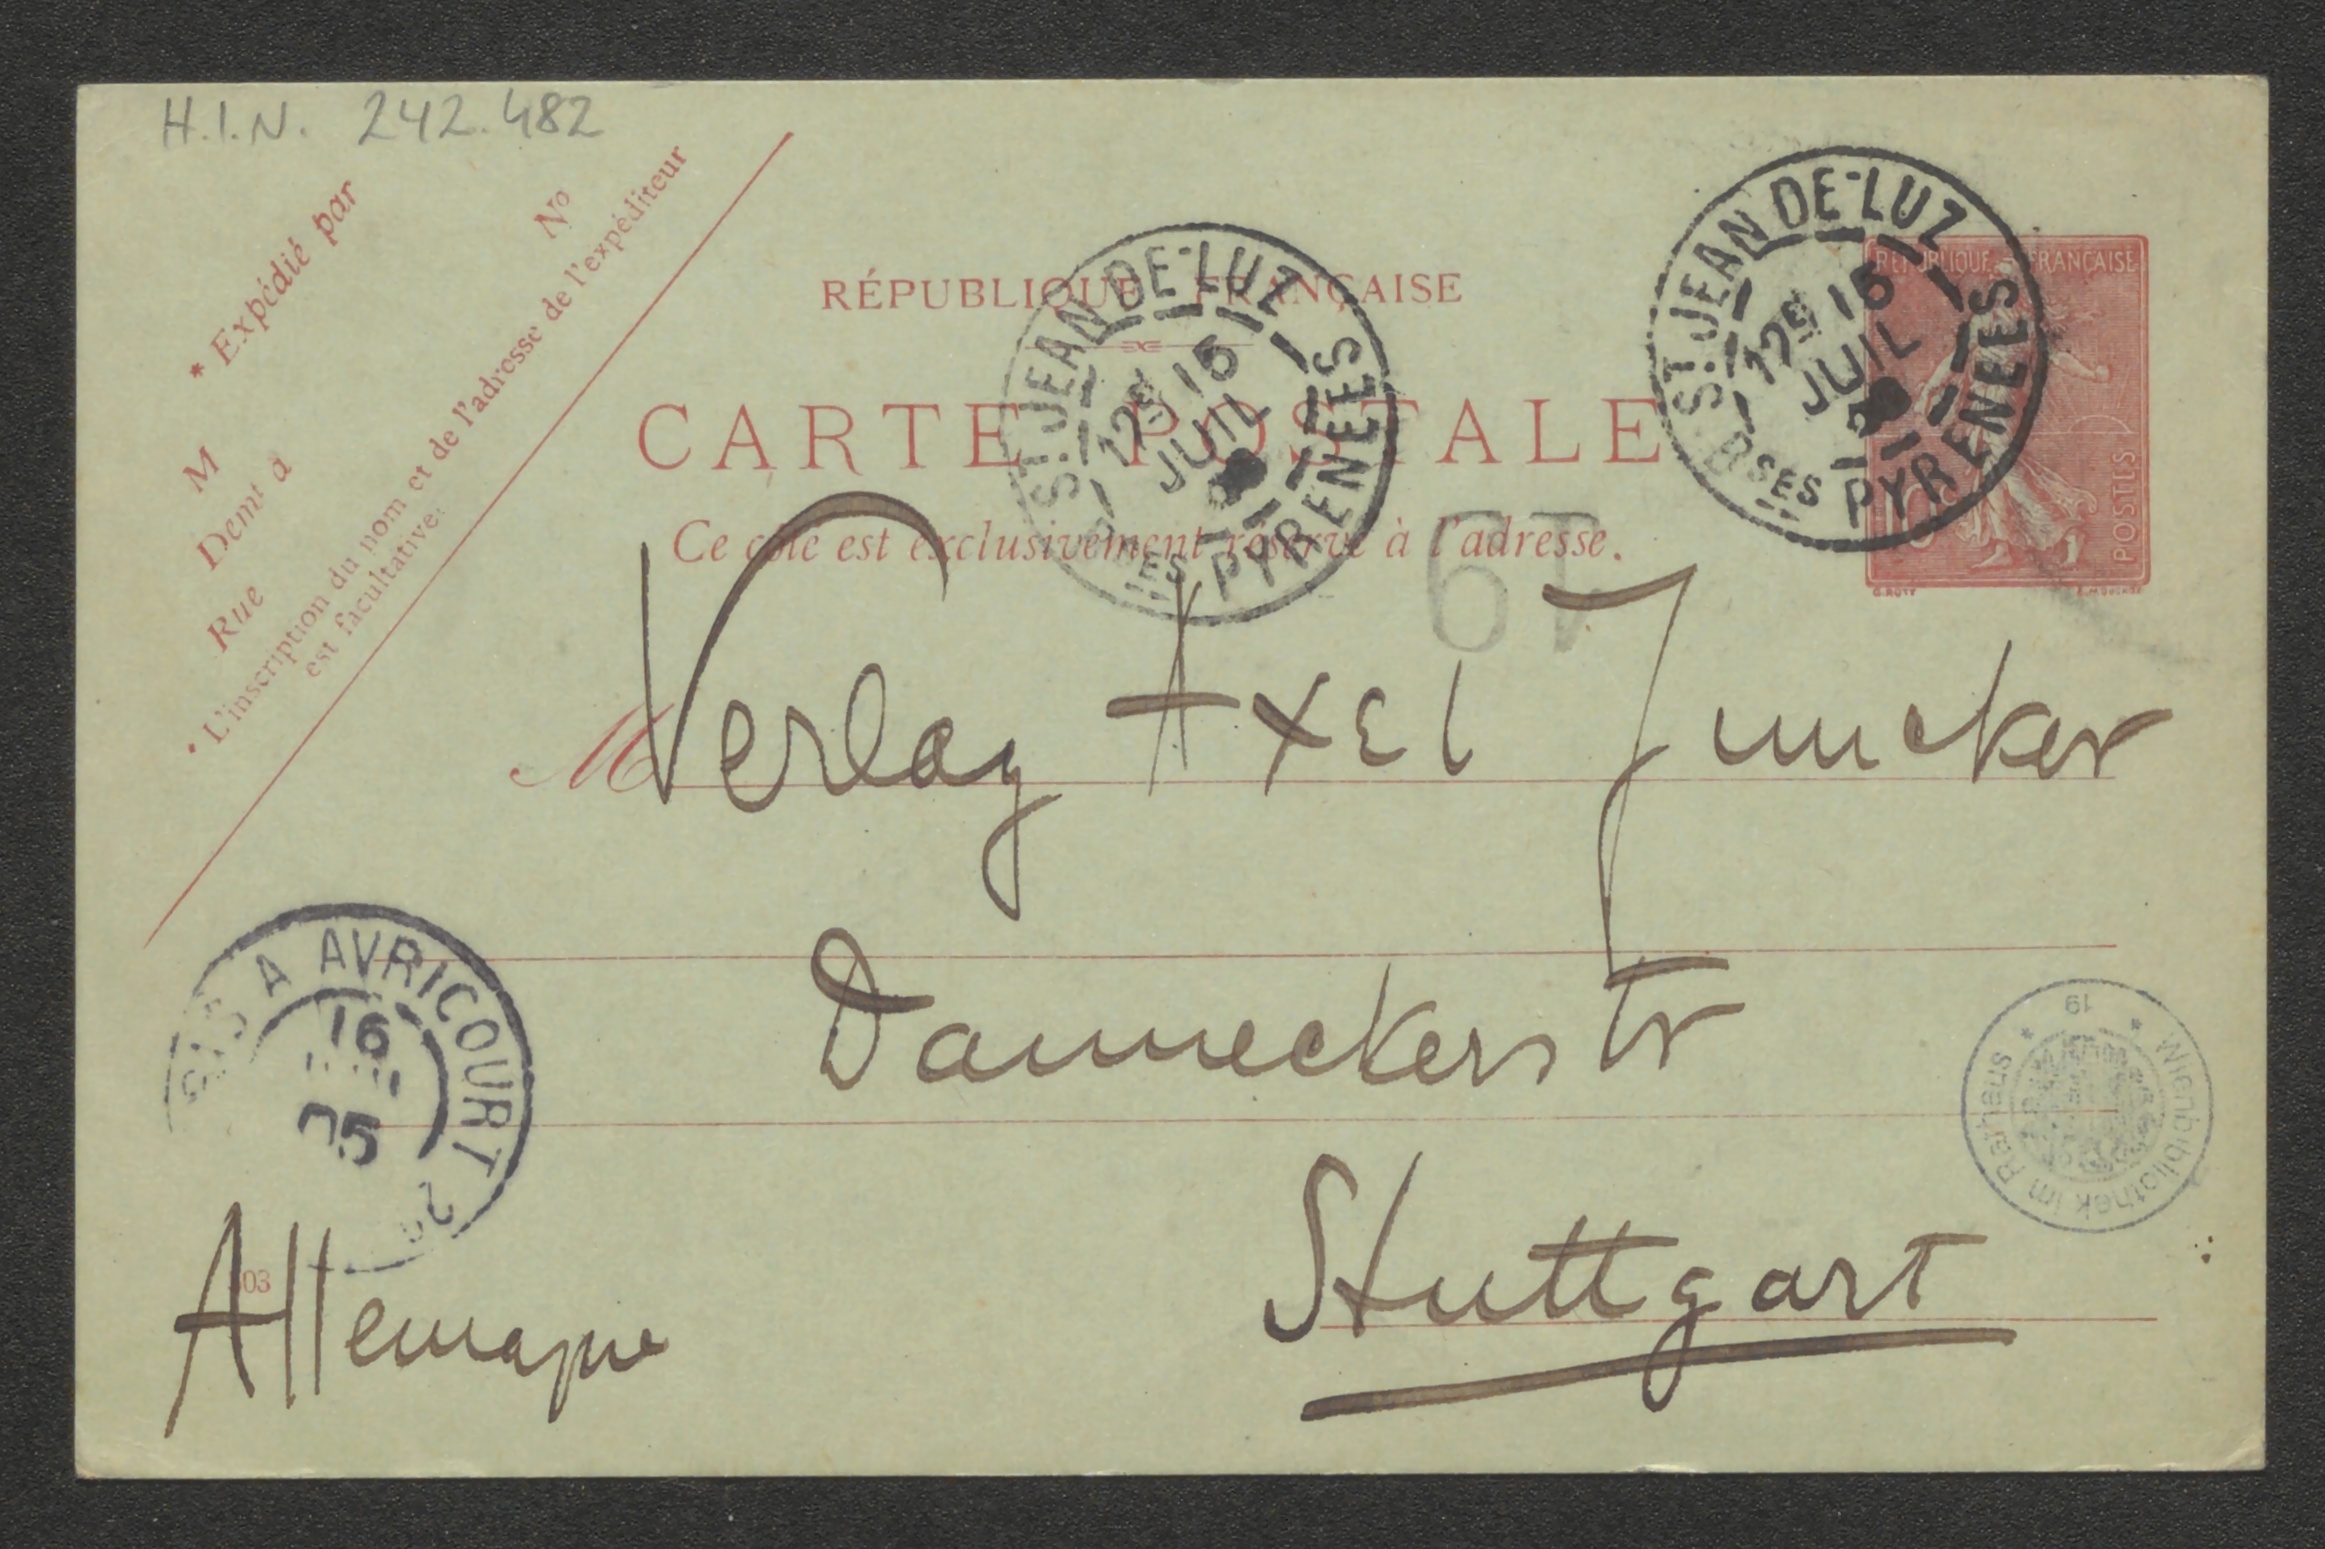 H.I.N. 242.482
* Expédié par
No
M
Demt à
Rue
* L'inscription du nom et de l'adresse de l'expéditeur
est facultative.
RÉPUBLIQUE FRANÇAISE
CARTE POSTALE
Ce côté est exclusivement réservé à l'adresse.
ST JEAN-DE-LUZ
15
JUIL
BSES PYRENEES
ST JEAN-DE-LUZ
15
JUIL
BSES PYRENEES
REPUBLIQUE FRANÇAISE
10
POSTES
O. ROTY
M Verlag Axel Juncker
Danneckerstr
Stuttgart
Allemagne
A AVRICOURT
16
05
Wienbibliothek im Rathaus
19